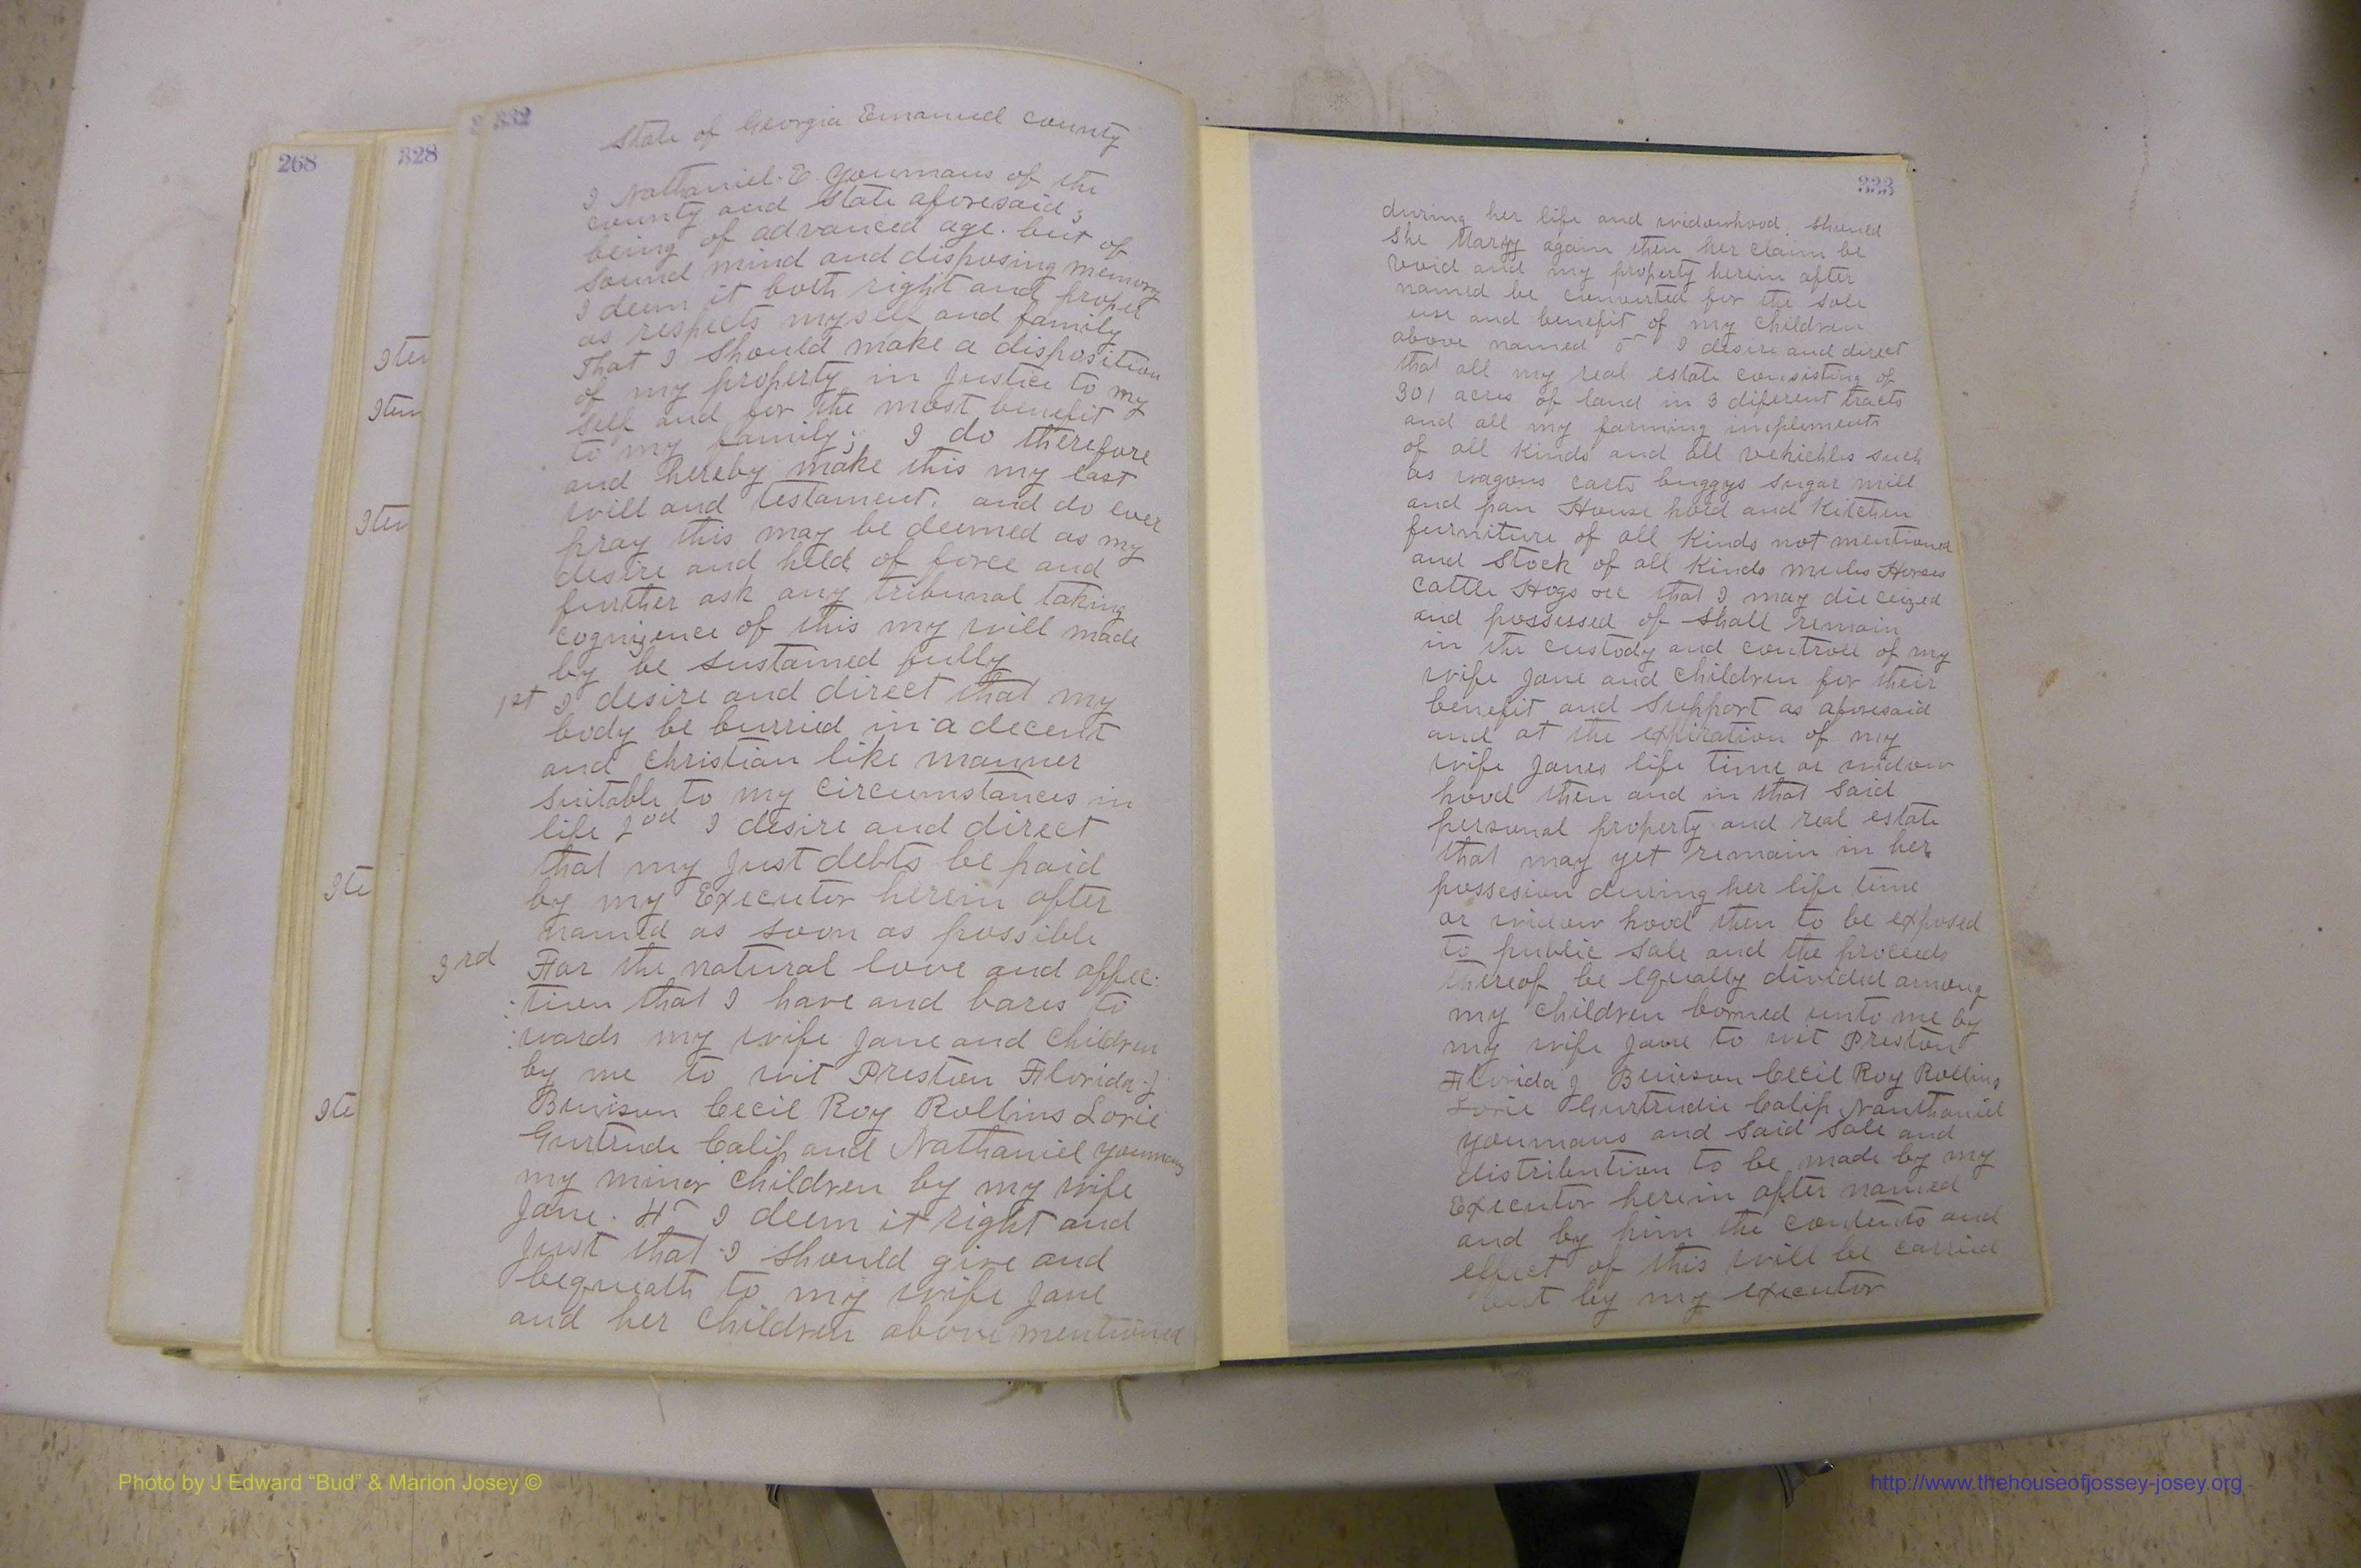 268
328
Item
Item
Item
Ite
Ite
332
State of Georgia Emanuel County
I Nathaniel. E Youmans of the
county and State aforesaid;
being of advanced age. but of
sound mind and disposing memory
I deem it both right and proper
as respects myself and family
That I should make a disposition
of my property in Justice to my
self and for the most benefit
to my family; I do therefore
and hereby make this my last
will and testament. and do ever
pray this may be deemed as my
desire and held of force and
further ask any tribunal taking
cognizence of this my will made
by be sustained fully
1st I desire and direct that my
body be burried in a decent
and Christian like manner
suitable to my circumstances in
life 2nd I desire and direct
that my Just debts be paid
by my Executor herein after
named as soon as possible
3rd For the natural love and affec-
tion that I have and bares to
wards my wife Jane and Children
by me to wit Preston Florida J
Benison Cecil Roy Rollins Lorie
Gurtrude Calip and Nathaniel Youmans
my minor children by my wife
Jane. 4 I deem it right and
Just that I should give and
bequeath to my wife Jane
and her Children above mentioned
333
during her life and widowhood, should
She Marry again then her claim be
void and my property herein after
named be converted for the sole
use and benefit of my children
above named 5 I desire and direct
that all my real estate consisting of
301 acres of land in 3 diferent tracts
and all my farming implements
of all Kinds and all vehichles such
as wagons carts buggys Sugar mill
and pan House hold and Kitchen
furniture of all Kinds not mentioned
and Stock of all Kinds mules Horses
Cattle Hogs that I may die ceized
and possessed of Shall remain
in the custody and controll of my
wife Jane and Children for their
benefit and Support as aforesaid
and at the expiration of my
wife Janes life time or widow
hood then and in that said
personal property and real estate
that may yet remain in her
possesion during her life time
or widow hood then to be exposed
to public Sale and the proceeds
thereof be equally divided among
my Children borned unto me by
my wife Jane to wit Preston
Florida J Benison Cecil Roy Rollins
Lorie Gurtrudie Calip Nanthaniel
Youmans and Said Sale and
distribution to be made by my
Executor herein after named
and by him the contents and
effect of this will be carried
out by my executor
Photo by J Edward “Bud” & Marion Josey ©
http://www.thehouseofjossey-josey.org